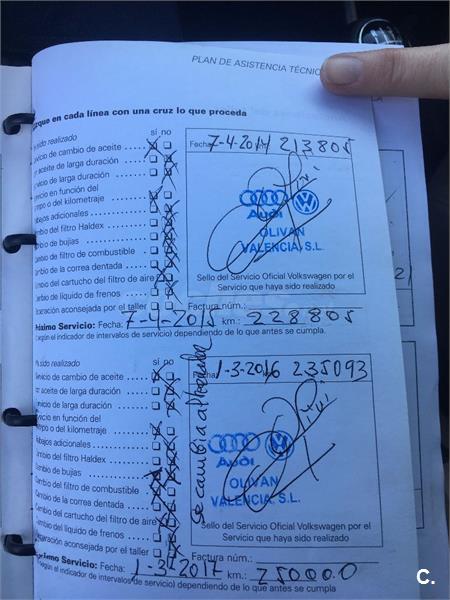 PLAN DE ASISTENCIA TÉCNIC
arque en cada línea con una cruz lo que proceda
sí no
a sido realizado
rvicio de cambio de aceite
on aceite de larga duración
rvicio de larga duración
ervicio en función del
empo o del kilometraje
abajos adicionales
mbio del filtro Haldex
mbio de bujías
ambio del filtro de combustible
ambio de la correa dentada
mbio del cartucho del filtro de aire
mbio del líquido de frenos
paración aconsejada por el taller
Fecha: 7-4-2014 213805
Audi
OLIVAN
VALENCIA, S.L.
Sello del Servicio Oficial Volkswagen por el
Servicio que haya sido realizado
Factura núm.:
óximo Servicio: Fecha: 7-4-2015 km.: 228805
(según el indicador de intervalos de servicio) dependiendo de lo que antes se cumpla.
sí no
a sido realizado
ervicio de cambio de aceite
on aceite de larga duración
ervicio de larga duración
ervicio en función del
empo o del kilometraje
abajos adicionales
ambio del filtro Haldex
ambio de bujías
Cambio del filtro de combustible
Cambio de la correa dentada
Cambio del cartucho del filtro de aire
Cambio del líquido de frenos
eparación aconsejada por el taller
se cambia
Fecha: 1-3-2016 235093
Audi
OLIVAN
VALENCIA, S.L.
Sello del Servicio Oficial Volkswagen por el
Servicio que haya sido realizado
Factura núm.:
Próximo Servicio: Fecha: 1-3-2017 km.: 250000
(según el indicador de intervalos de servicio) dependiendo de lo que antes se cumpla.
C.